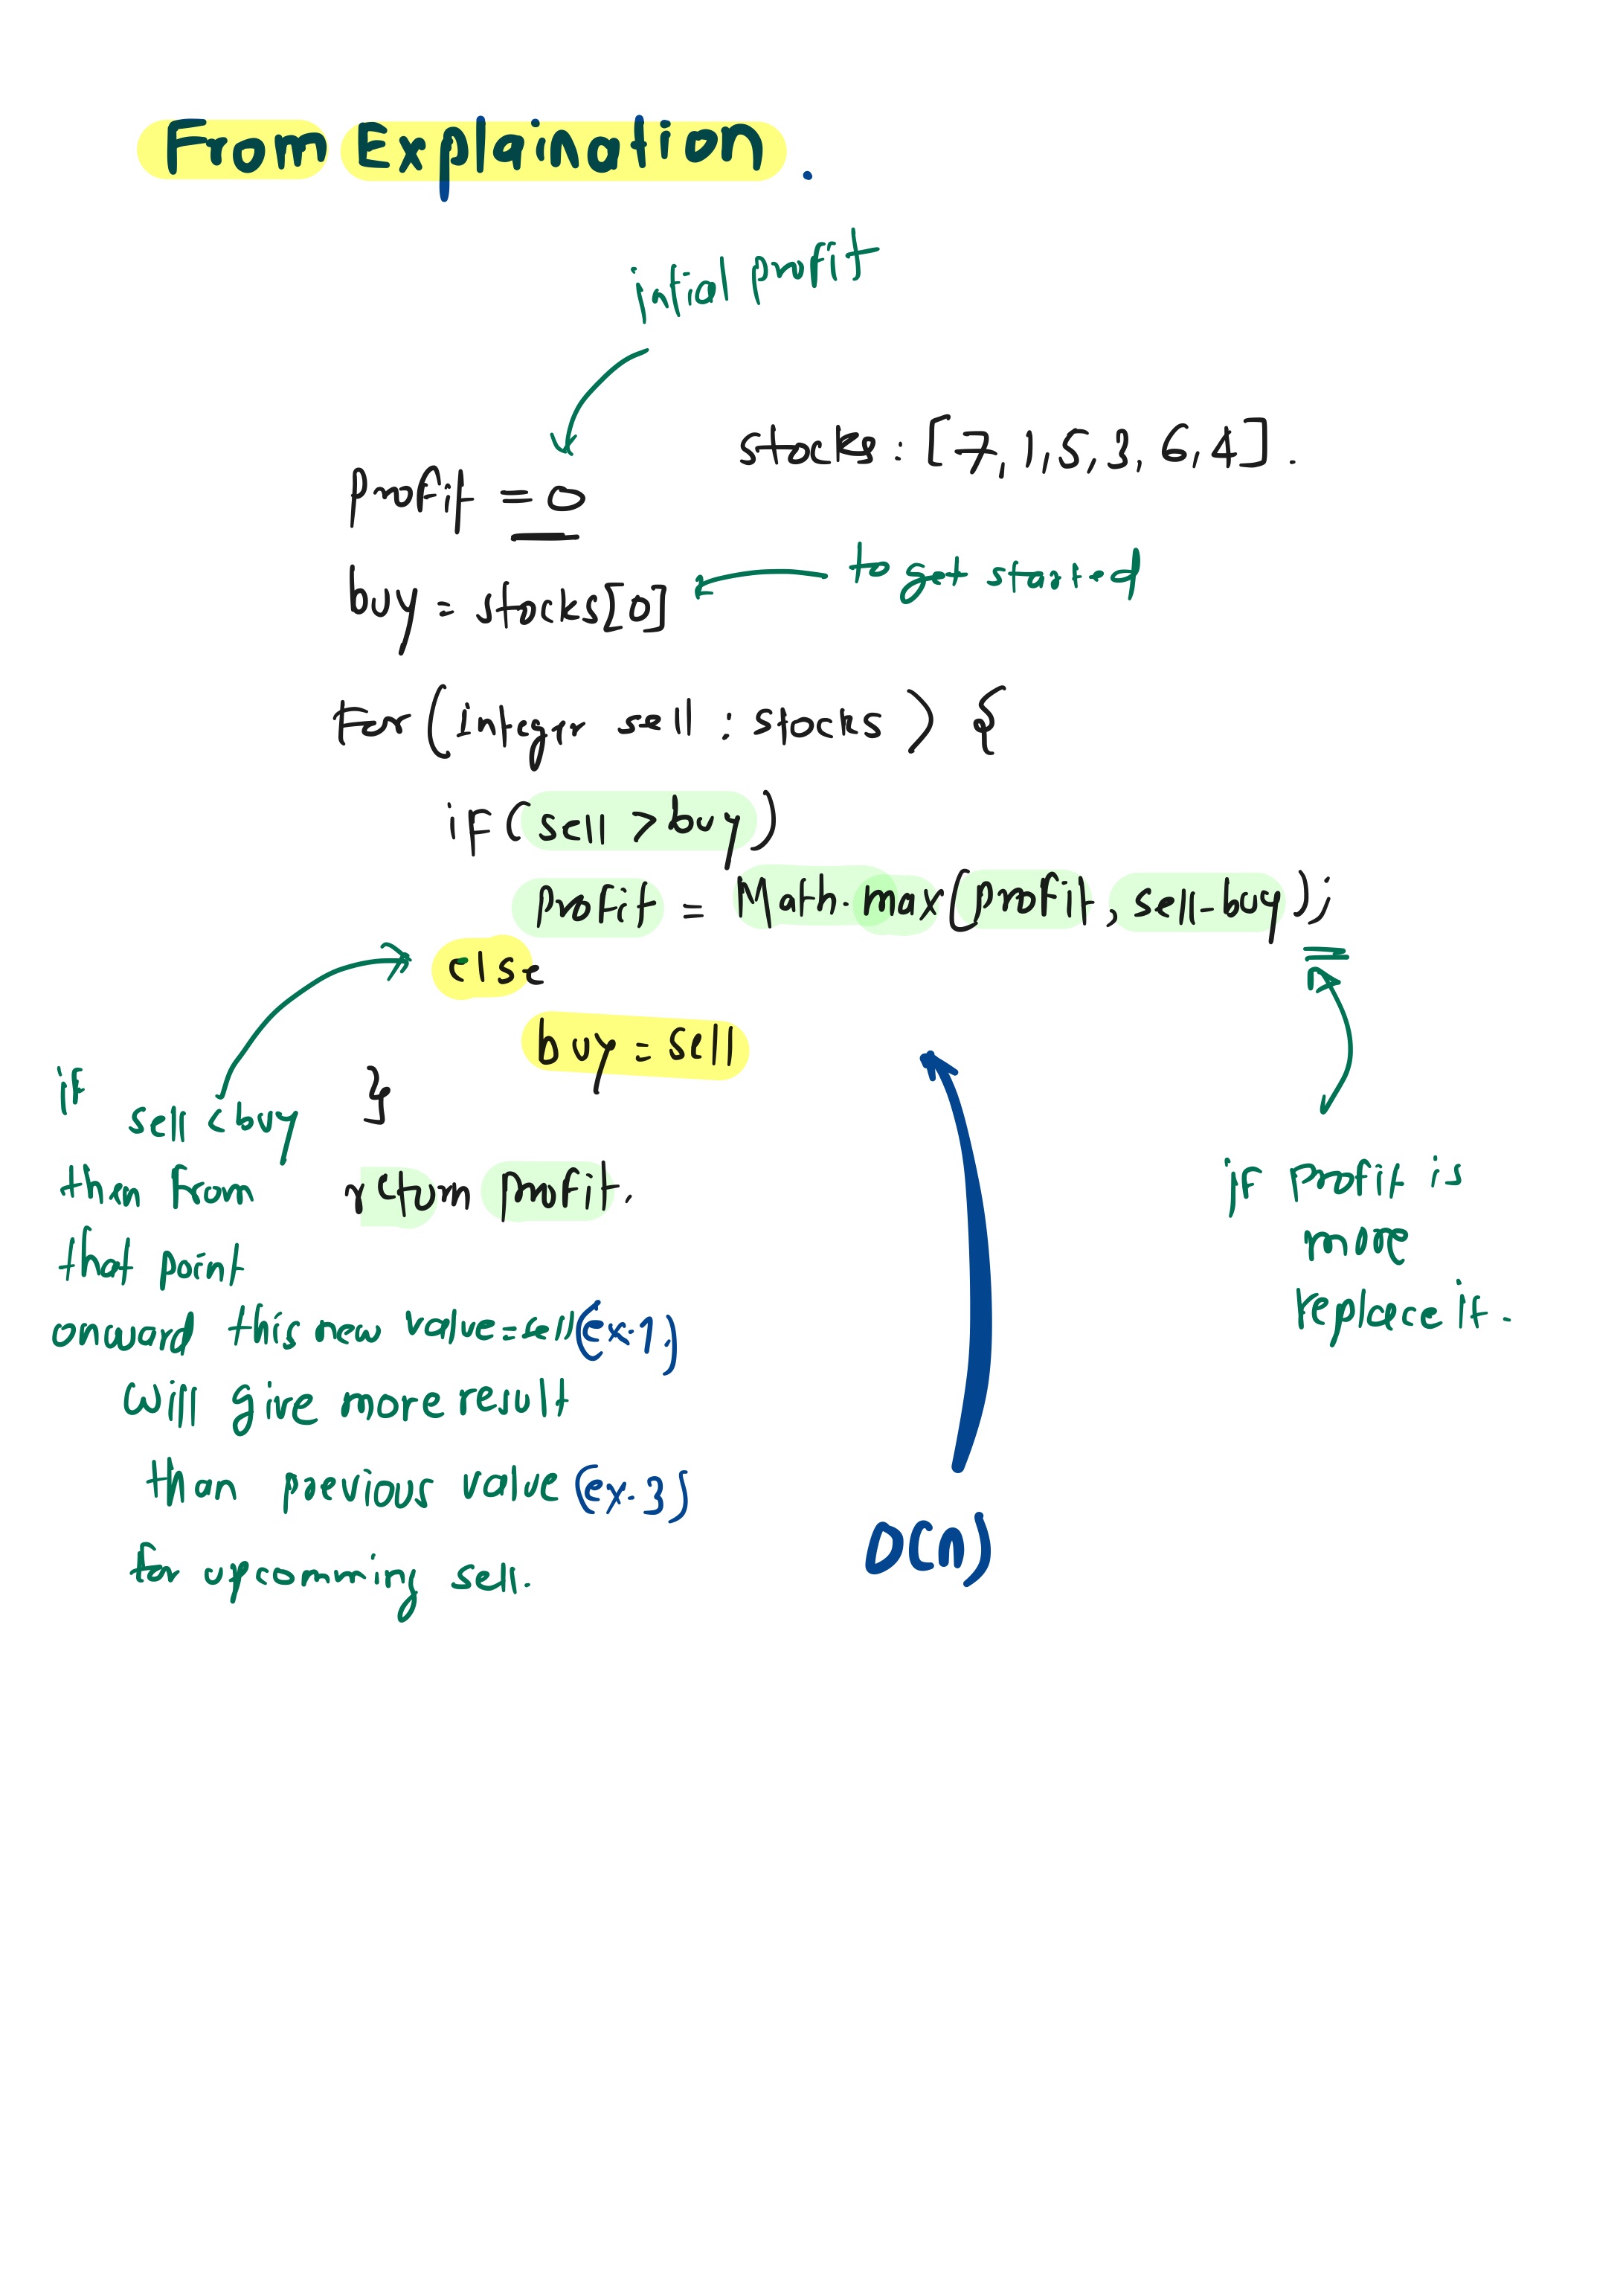 From Explaination .
intial profit
stocks : [7, 1, 5, 3, 6, 4] .
profit = 0
to get started
buy = stocks[0]
For (integr sell : stocks) {
if (sell > buy)
profit = Math.max(profit, sell-buy);
else
buy = sell
}
return profit.
if sell < buy
then from
that point
onward this new value = sell (ex-1)
will give more result
than previous value (ex-3)
for upcomming sell.
if profit is
more
replace it .
O(n)